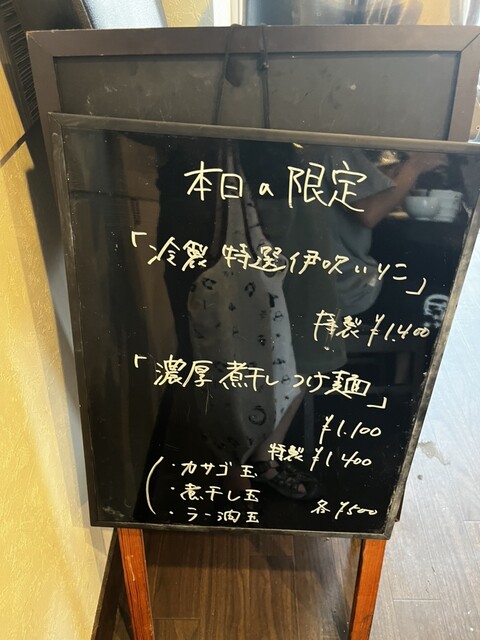 本日の限定
「冷製 特選伊吹いりこ」
特製 ¥1.400
「濃厚煮干しつけ麺」
¥1.100
特製 ¥1.400
・カサゴ玉
・煮干し玉
・ラー油玉 各 ¥500